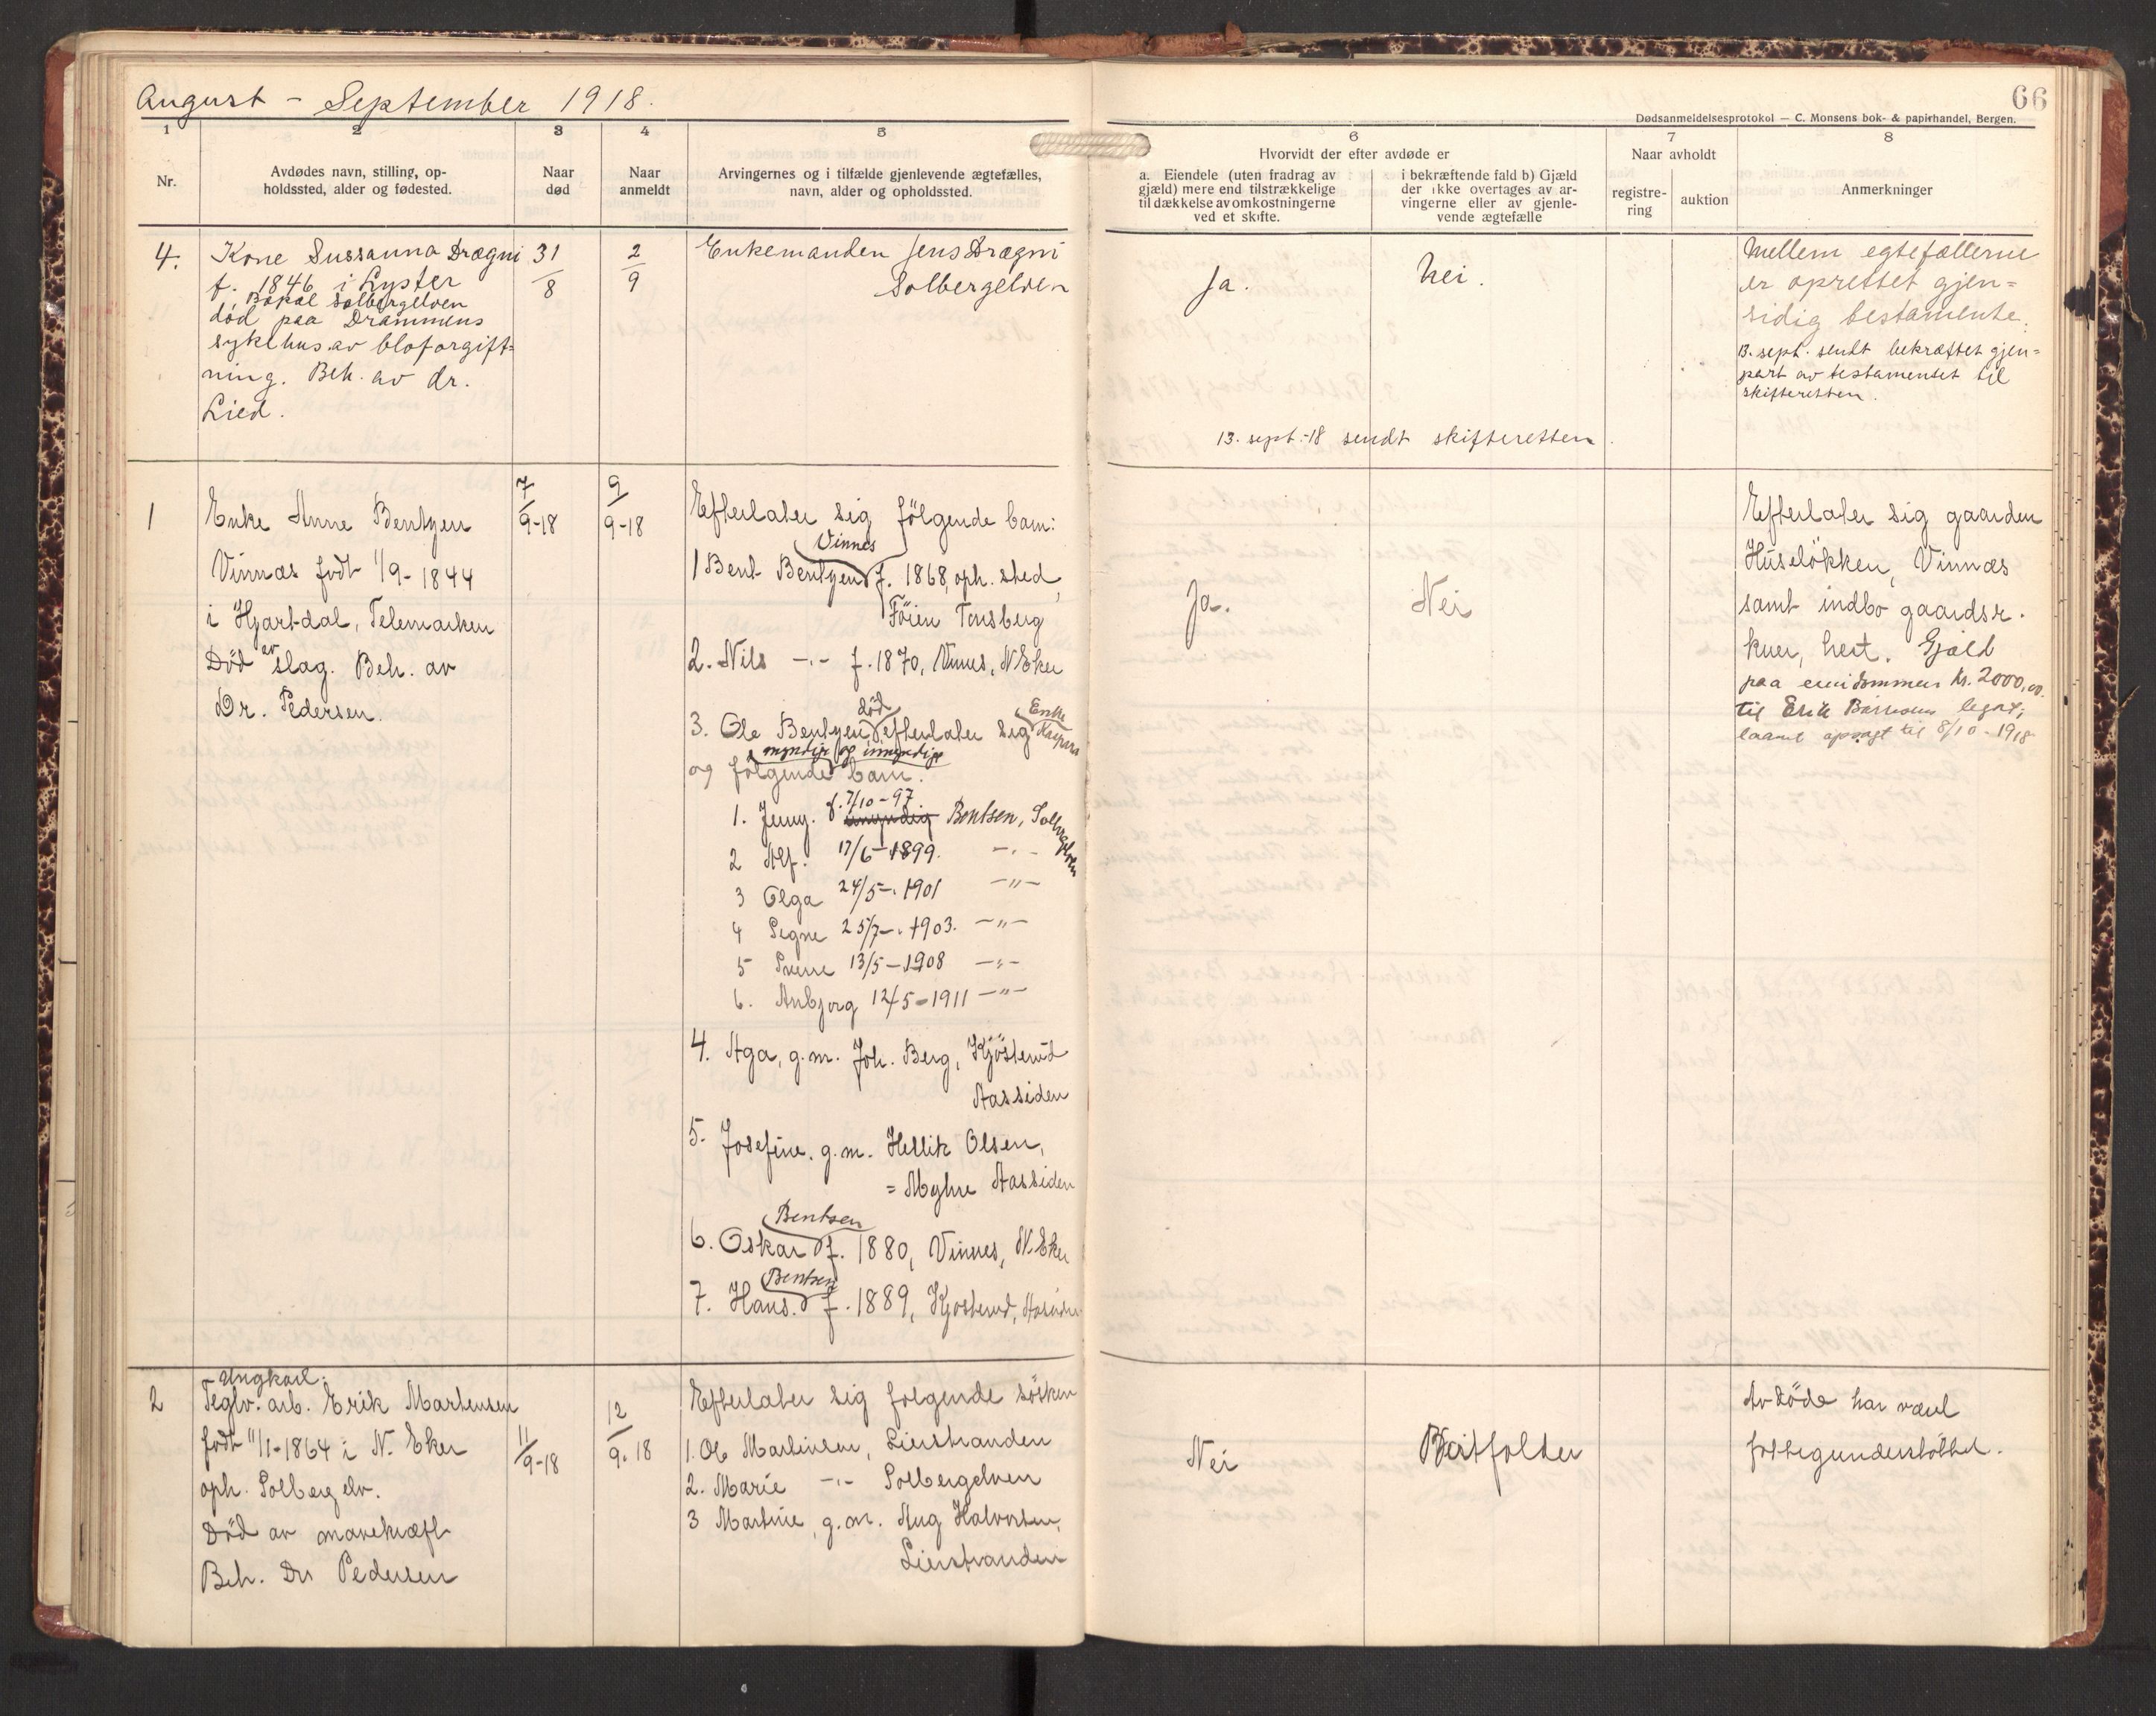 August – September 1918.
66
Dødsanmeldelsesprotokol — C. Monsens bok- & papirhandel, Bergen.
1
2
3
4
5
6
7
8
Nr.
Avdødes navn, stilling, op-
holdssted, alder og fødested.
Naar
død
Naar
anmeldt
Arvingernes og i tilfælde gjenlevende ægtefælles,
navn, alder og opholdssted.
Hvorvidt der efter avdøde er
a. Eiendele (uten fradrag av
gjæld) mere end tilstrækkelige
til dækkelse av omkostningerne
ved et skifte.
i bekræftende fald b) Gjæld
der ikke overtages av ar-
vingerne eller av gjenle-
vende ægtefælle
Naar avholdt
registre-
ring
auktion
Anmerkninger
4.
Kone Sussanna Drægni
f. 1846 i Lyster
Bopæl Solbergelven
död paa Drammens
sykehus av bloforgift=
ning. Beh. av dr.
Lied.
31/8
2/9
Enkemanden Jens Drægni
Solbergelven
Ja.
Nei.
Mellem egtefællerne
er oprettet gjen=
sidig testamente.
13. sept. sendt bekræftet gjen=
part av testamentet til
skifteretten.
13. sept.-18 sendt skifteretten.
1
Enke Anne Bentzen
Vinnæs fodt 1/9-1844
i Hjartdal, Telemarken
Död av slag. Beh. av
Dr. Pedersen.
7/9-18
9/9-18
Efterlater sig fölgende barn:
1 Bent Bentzen Vinnes f. 1868, oph. sted,
Föien Tonsberg
2. Nils -"- f. 1870, Vinnes, N Eker
3. Ole Bentzen död efterlater sig Enke
og følgende myndige og umyndige barn.
1. Jenny. f. 7/10-97 umyndig Bentsen,
2 Alf. 17/6-1899. -"-
3 Olga 24/5-1901 -"-
4 Signe 25/7-1903. -"-
5 Sverre 13/5-1908 -"-
6. Anbjorg 12/5-1911 -"-
4. Aga, g.m. Joh. Berg, Kjösterud
Aassiden
5. Josefine. g.m. Hellik Olsen,
= Myhre Aassiden
6. Oskar Bentsen f. 1880, Vinnes, N Eker
7. Hans. Bentsen f. 1889, Kjosterud, Aassiden
Ja.
Nei
Efterlater sig gaarden
Huselökken, Vinnæs
samt indbo gaardsr.
kuer, hest. Gjæld
paa eiendommen kr. 2000,00
til Erik Börresens legat;
laanet opsagt til 8/10-1918
2
Ungkarl.
Teglv. arb. Erik Martensen
fodt 11/1-1864 i N. Eker
oph. Solbergelv.
Död av mavekræft
Beh. Dr Pedersen
11/9-18
12/9.18
Efterlater sig folgende sösken
1. Ole Martinsen, Lierstranden
2. Marie -"- Solbergelven
3 Martine, g.m. Aug Halvorsen,
Lierstranden
Nei
Avdöde har vært
fattigunderstöttet.